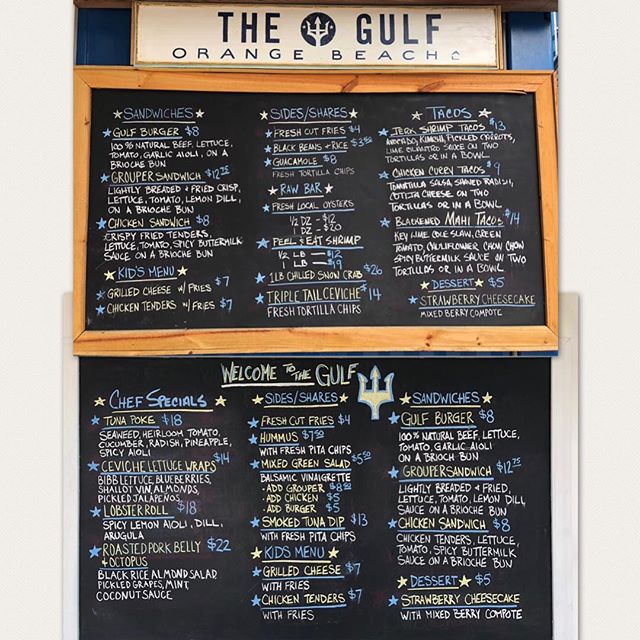 THE GULF
ORANGE BEACH
SANDWICHES
GULF BURGER $8
100% NATURAL BEEF, LETTUCE,
TOMATO, GARLIC AIOLI, ON A
BRIOCHE BUN
GROUPER SANDWICH $12.75
LIGHTLY BREADED + FRIED CRISP,
LETTUCE, TOMATO, LEMON DILL,
ON A BRIOCHE BUN
CHICKEN SANDWICH $8
CRISPY FRIED TENDERS,
LETTUCE, TOMATO, SPICY BUTTERMILK
SAUCE ON A BRIOCHE BUN
KID'S MENU
GRILLED CHEESE W/ FRIES $7
CHICKEN TENDERS W/ FRIES $7
SIDES/SHARES
FRESH CUT FRIES $4
BLACK BEANS + RICE $3.50
GUACAMOLE $8
FRESH TORTILLA CHIPS
RAW BAR
FRESH LOCAL OYSTERS
1/2 DZ - $12
1 DZ - $20
PEEL & EAT SHRIMP
1/2 LB - $12
1 LB - $19
1LB CHILLED SNOW CRAB $26
TRIPLE TAIL CEVICHE $14
FRESH TORTILLA CHIPS
TACOS
JERK SHRIMP TACOS $13
AVOCADO, KIMCHI, PICKLED CARROTS,
LIME CILANTRO SAUCE ON TWO
TORTILLAS OR IN A BOWL
CHICKEN CURRY TACOS $9
TOMATILLA SALSA, SHAVED RADISH,
COTIJA CHEESE ON TWO
TORTILLAS OR IN A BOWL
BLACKENED MAHI TACOS $14
KEY LIME COLE SLAW, GREEN
TOMATO, CAULIFLOWER CHOW CHOW
SPICY BUTTERMILK SAUCE ON TWO
TORTILLAS OR IN A BOWL
DESSERT $5
STRAWBERRY CHEESECAKE
MIXED BERRY COMPOTE
WELCOME TO THE GULF
CHEF SPECIALS
TUNA POKE $18
SEAWEED, HEIRLOOM TOMATO,
CUCUMBER, RADISH, PINEAPPLE,
SPICY AIOLI
CEVICHE LETTUCE WRAPS $14
BIBB LETTUCE, BLUEBERRIES,
SHALLOT VIN, ALMONDS,
PICKLED JALAPEÑOS
LOBSTER ROLL $18
SPICY LEMON AIOLI, DILL,
ARUGULA
ROASTED PORK BELLY $22
+ OCTOPUS
BLACK RICE ALMOND SALAD
PICKLED GRAPES, MINT,
COCONUT SAUCE
SIDES/SHARES
FRESH CUT FRIES $4
HUMMUS $7.50
WITH FRESH PITA CHIPS
MIXED GREEN SALAD $5.50
BALSAMIC VINAIGRETTE
- ADD GROUPER $8.50
- ADD CHICKEN $5
- ADD BURGER $5
SMOKED TUNA DIP $13
WITH FRESH PITA CHIPS
KIDS MENU
GRILLED CHEESE $7
WITH FRIES
CHICKEN TENDERS $7
WITH FRIES
SANDWICHES
GULF BURGER $8
100% NATURAL BEEF, LETTUCE,
TOMATO, GARLIC AIOLI
ON A BRIOCH BUN
GROUPER SANDWICH $12.75
LIGHTLY BREADED + FRIED,
LETTUCE, TOMATO, LEMON DILL,
SAUCE ON A BRIOCHE BUN
CHICKEN SANDWICH $8
CHICKEN TENDERS, LETTUCE,
TOMATO, SPICY BUTTERMILK
SAUCE ON A BRIOCHE BUN
DESSERT $5
STRAWBERRY CHEESECAKE
WITH MIXED BERRY COMPOTE